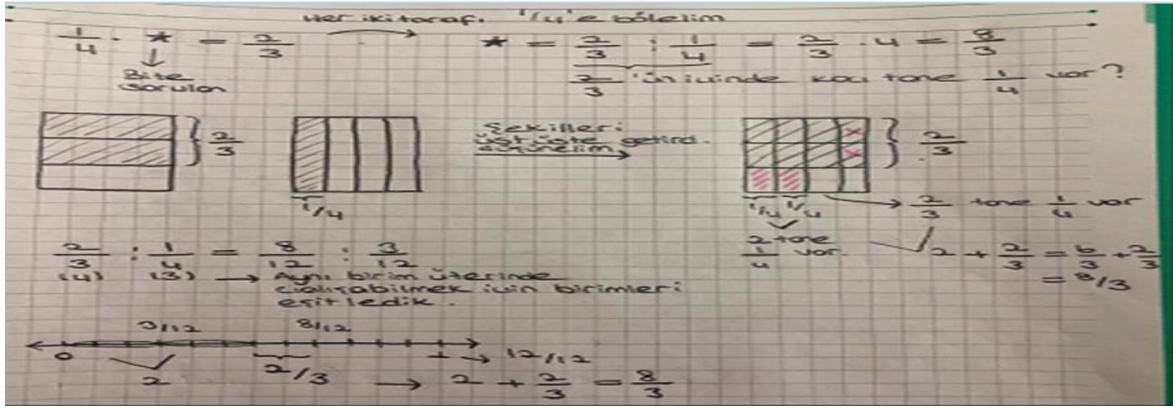 Her iki taraf. 1/4'e bölelim
1/4 · * = 2/3 → * = 2/3 : 1/4 = 2/3 · 4 = 8/3
Bize sorulan
2/3 'ün içinde kaç tane 1/4 var?
2/3
1/4
Şekilleri
üst üste getird.
düşünelim
2/3
1/4 1/4
2 tane
1/4 var
2/3 tane 1/4 var
2 + 2/3 = 6/3 + 2/3
= 8/3
2/3 : 1/4 = 8/12 : 3/12
(4) (3) → Aynı birim üzerinde
çalışabilmek için birimleri
eşitledik.
3/12 8/12
0 1 → 12/12
2 2/3 → 2 + 2/3 = 8/3